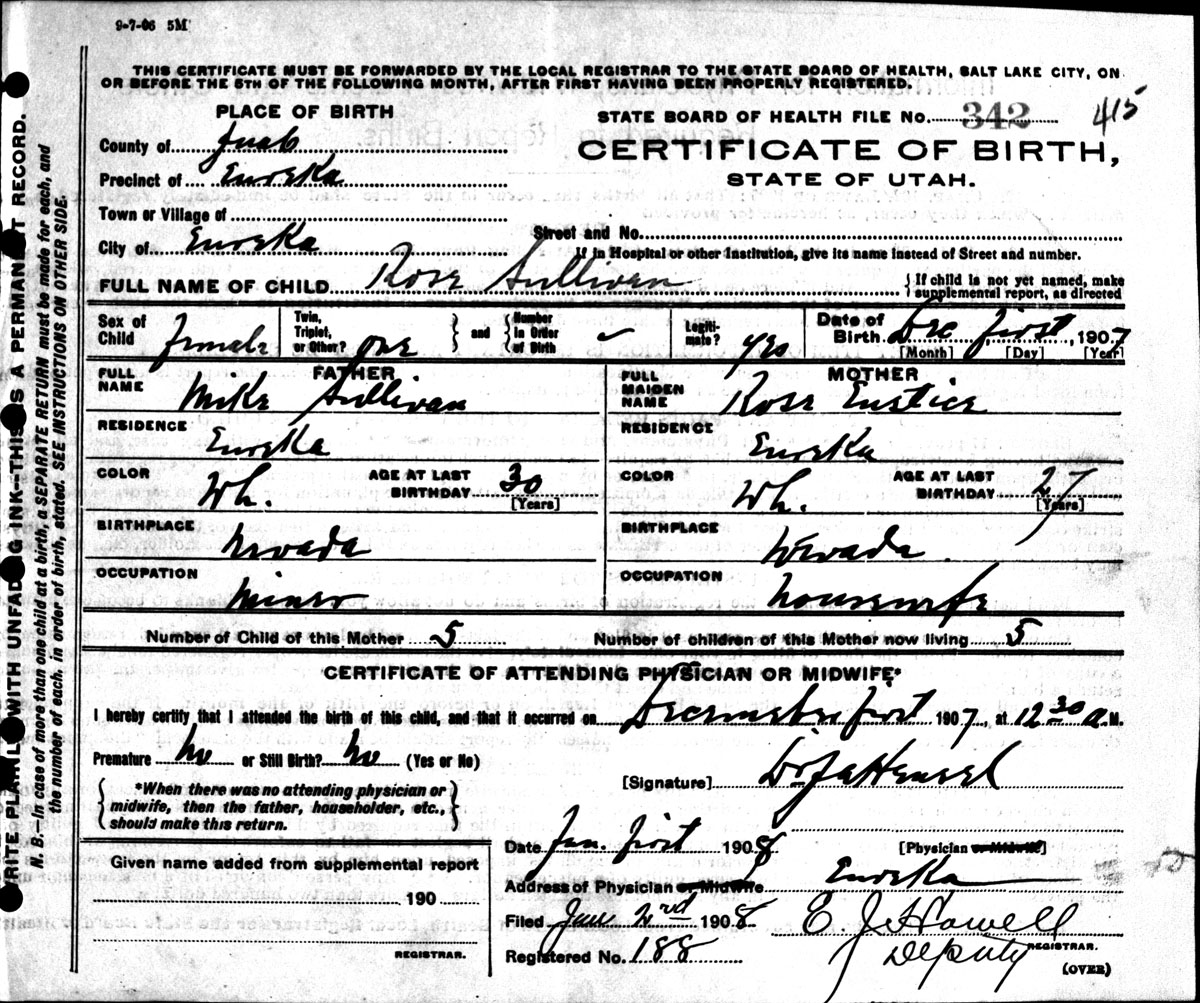 9-7-06 5M
THIS CERTIFICATE MUST BE FORWARDED BY THE LOCAL REGISTRAR TO THE STATE BOARD OF HEALTH, SALT LAKE CITY, ON
OR BEFORE THE 5TH OF THE FOLLOWING MONTH, AFTER FIRST HAVING BEEN PROPERLY REGISTERED.
PLACE OF BIRTH
STATE BOARD OF HEALTH FILE No. 342 415
County of Juab
CERTIFICATE OF BIRTH,
Precinct of Eureka
STATE OF UTAH.
Town or Village of
Street and No.
City of Eureka
If in Hospital or other Institution, give its name instead of Street and number.
FULL NAME OF CHILD Rose Sullivan
{ If child is not yet named, make supplemental report, as directed
Sex of Child Female
Twin, Triplet, or Other? One } and { Number in Order of Birth ✓
Legitimate? yes
Date of Birth Dec first, 1907
[Month] [Day] [Year]
FATHER
FULL NAME Mike Sullivan
MOTHER
FULL MAIDEN NAME Rose Eustice
RESIDENCE Eureka
RESIDENCE Eureka
COLOR Wh. AGE AT LAST BIRTHDAY 30 [Years]
COLOR Wh. AGE AT LAST BIRTHDAY 27 [Years]
BIRTHPLACE Nevada
BIRTHPLACE Nevada
OCCUPATION Miner
OCCUPATION Housewife
Number of Child of this Mother 5 Number of children of this Mother now living 5
CERTIFICATE OF ATTENDING PHYSICIAN OR MIDWIFE*
I hereby certify that I attended the birth of this child, and that it occurred on December first 1907, at 12 30 A.M.
Premature No or Still Birth? No (Yes or No)
[Signature] Dr J A Hensel
{ *When there was no attending physician or
midwife, then the father, householder, etc.,
should make this return. }
Date Jan. first 1908 [Physician or Midwife]
Given name added from supplemental report
190
REGISTRAR.
Address of Physician or Midwife Eureka
Filed Jan 2nd 1908 E. J. Howell
Deputy REGISTRAR.
Registered No. 188
(OVER)
WRITE PLAINLY WITH UNFADING INK—THIS IS A PERMANENT RECORD.
N. B.—In case of more than one child at a birth, a SEPARATE RETURN must be made for each, and
the number of each, in order of birth, stated. SEE INSTRUCTIONS ON OTHER SIDE.